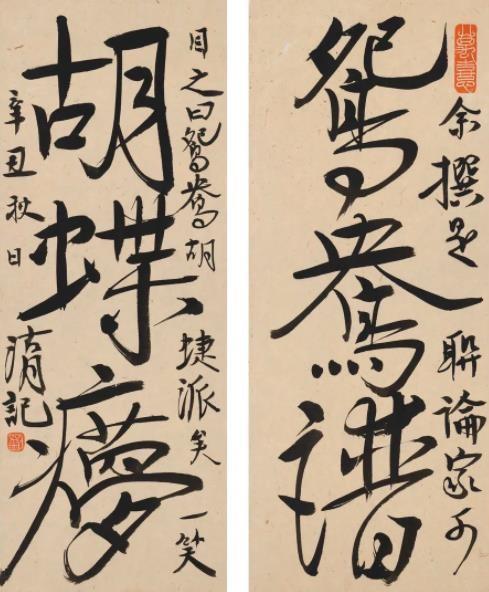 鴛鴦譜
胡蝶夢
余撰是聯論家可
目之曰鴛鴦胡蝶派矣一笑
辛丑秋日
記